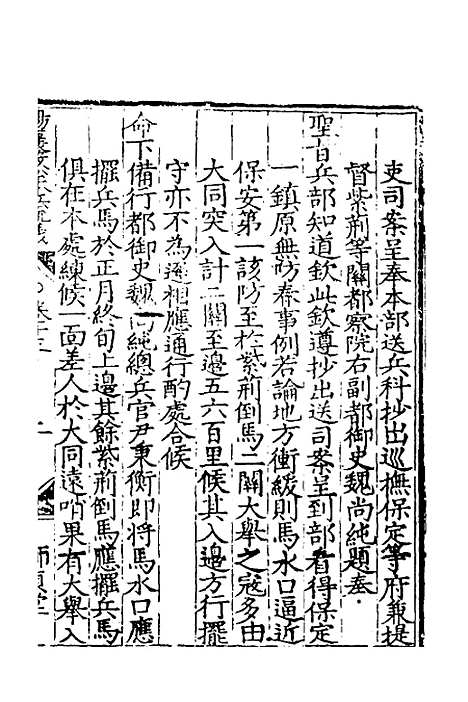 吏司案呈奉本部送兵科抄出巡撫保定等府兼提
督紫荆等關都察院右副都御史魏尚純題奉
聖旨兵部知道欽此欽遵抄出送司案呈到部看得保定
一鎮原無防秦事例若論地方衝緩則馬水口逼近
保安第一該防至於紫荆倒馬二關大舉之寇多由
大同突入計二關至邊五六百里候其入邊方行擺
守亦不為遲相應通行酌處合候
命下備行都御史魏尚純總兵官尹秉衡即將馬水口應
擺兵馬於正月終旬上邊其餘紫荆倒馬應擺兵馬
俱在本處練候一面差人於大同遠哨果有大舉入